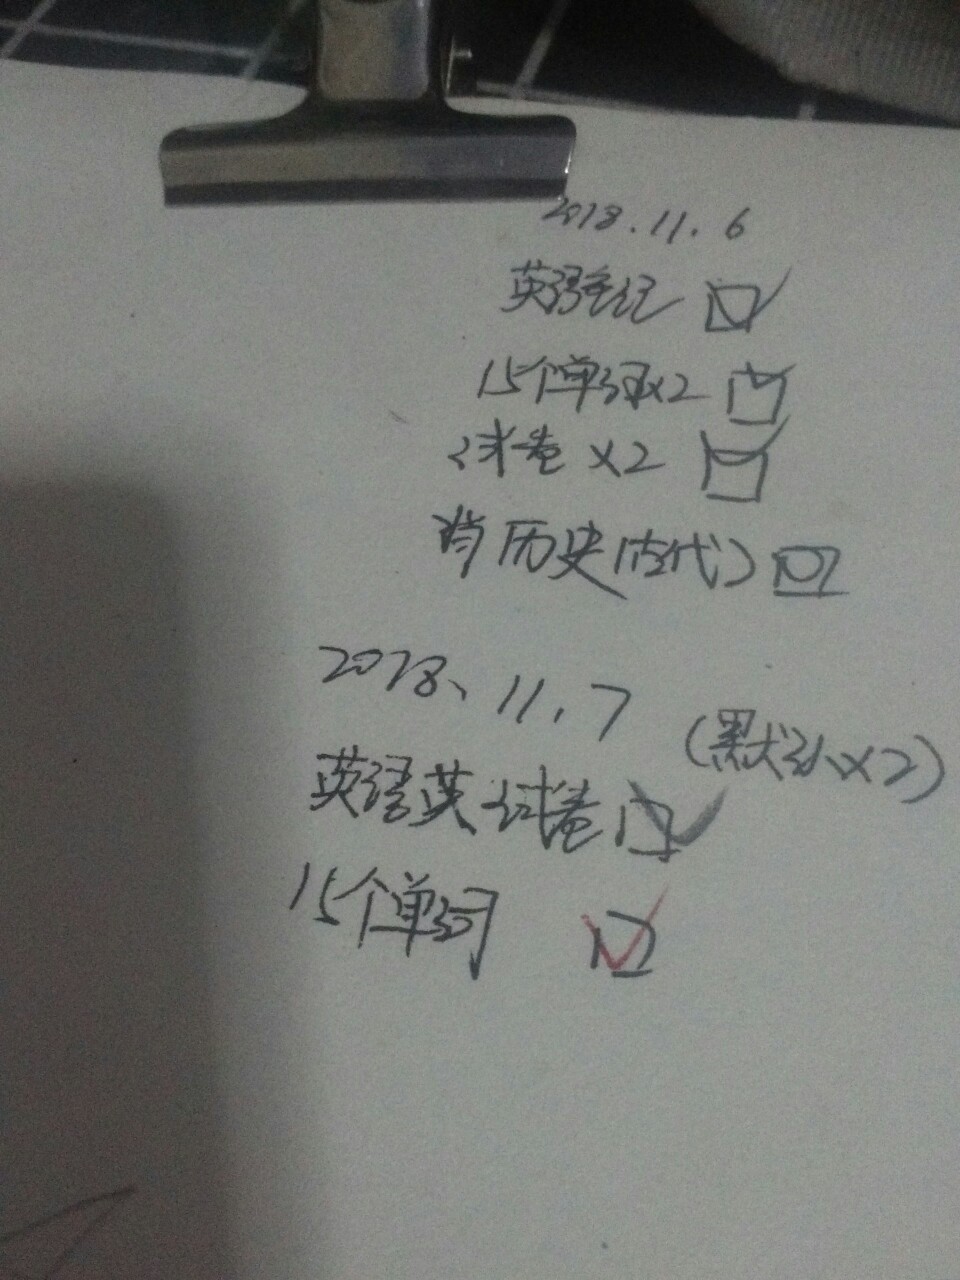 2018.11.6
英语笔记
15个单词x2
试卷 x2
背历史(古代)
2018、11.7
(默孙x2)
英语英试卷
15个单词